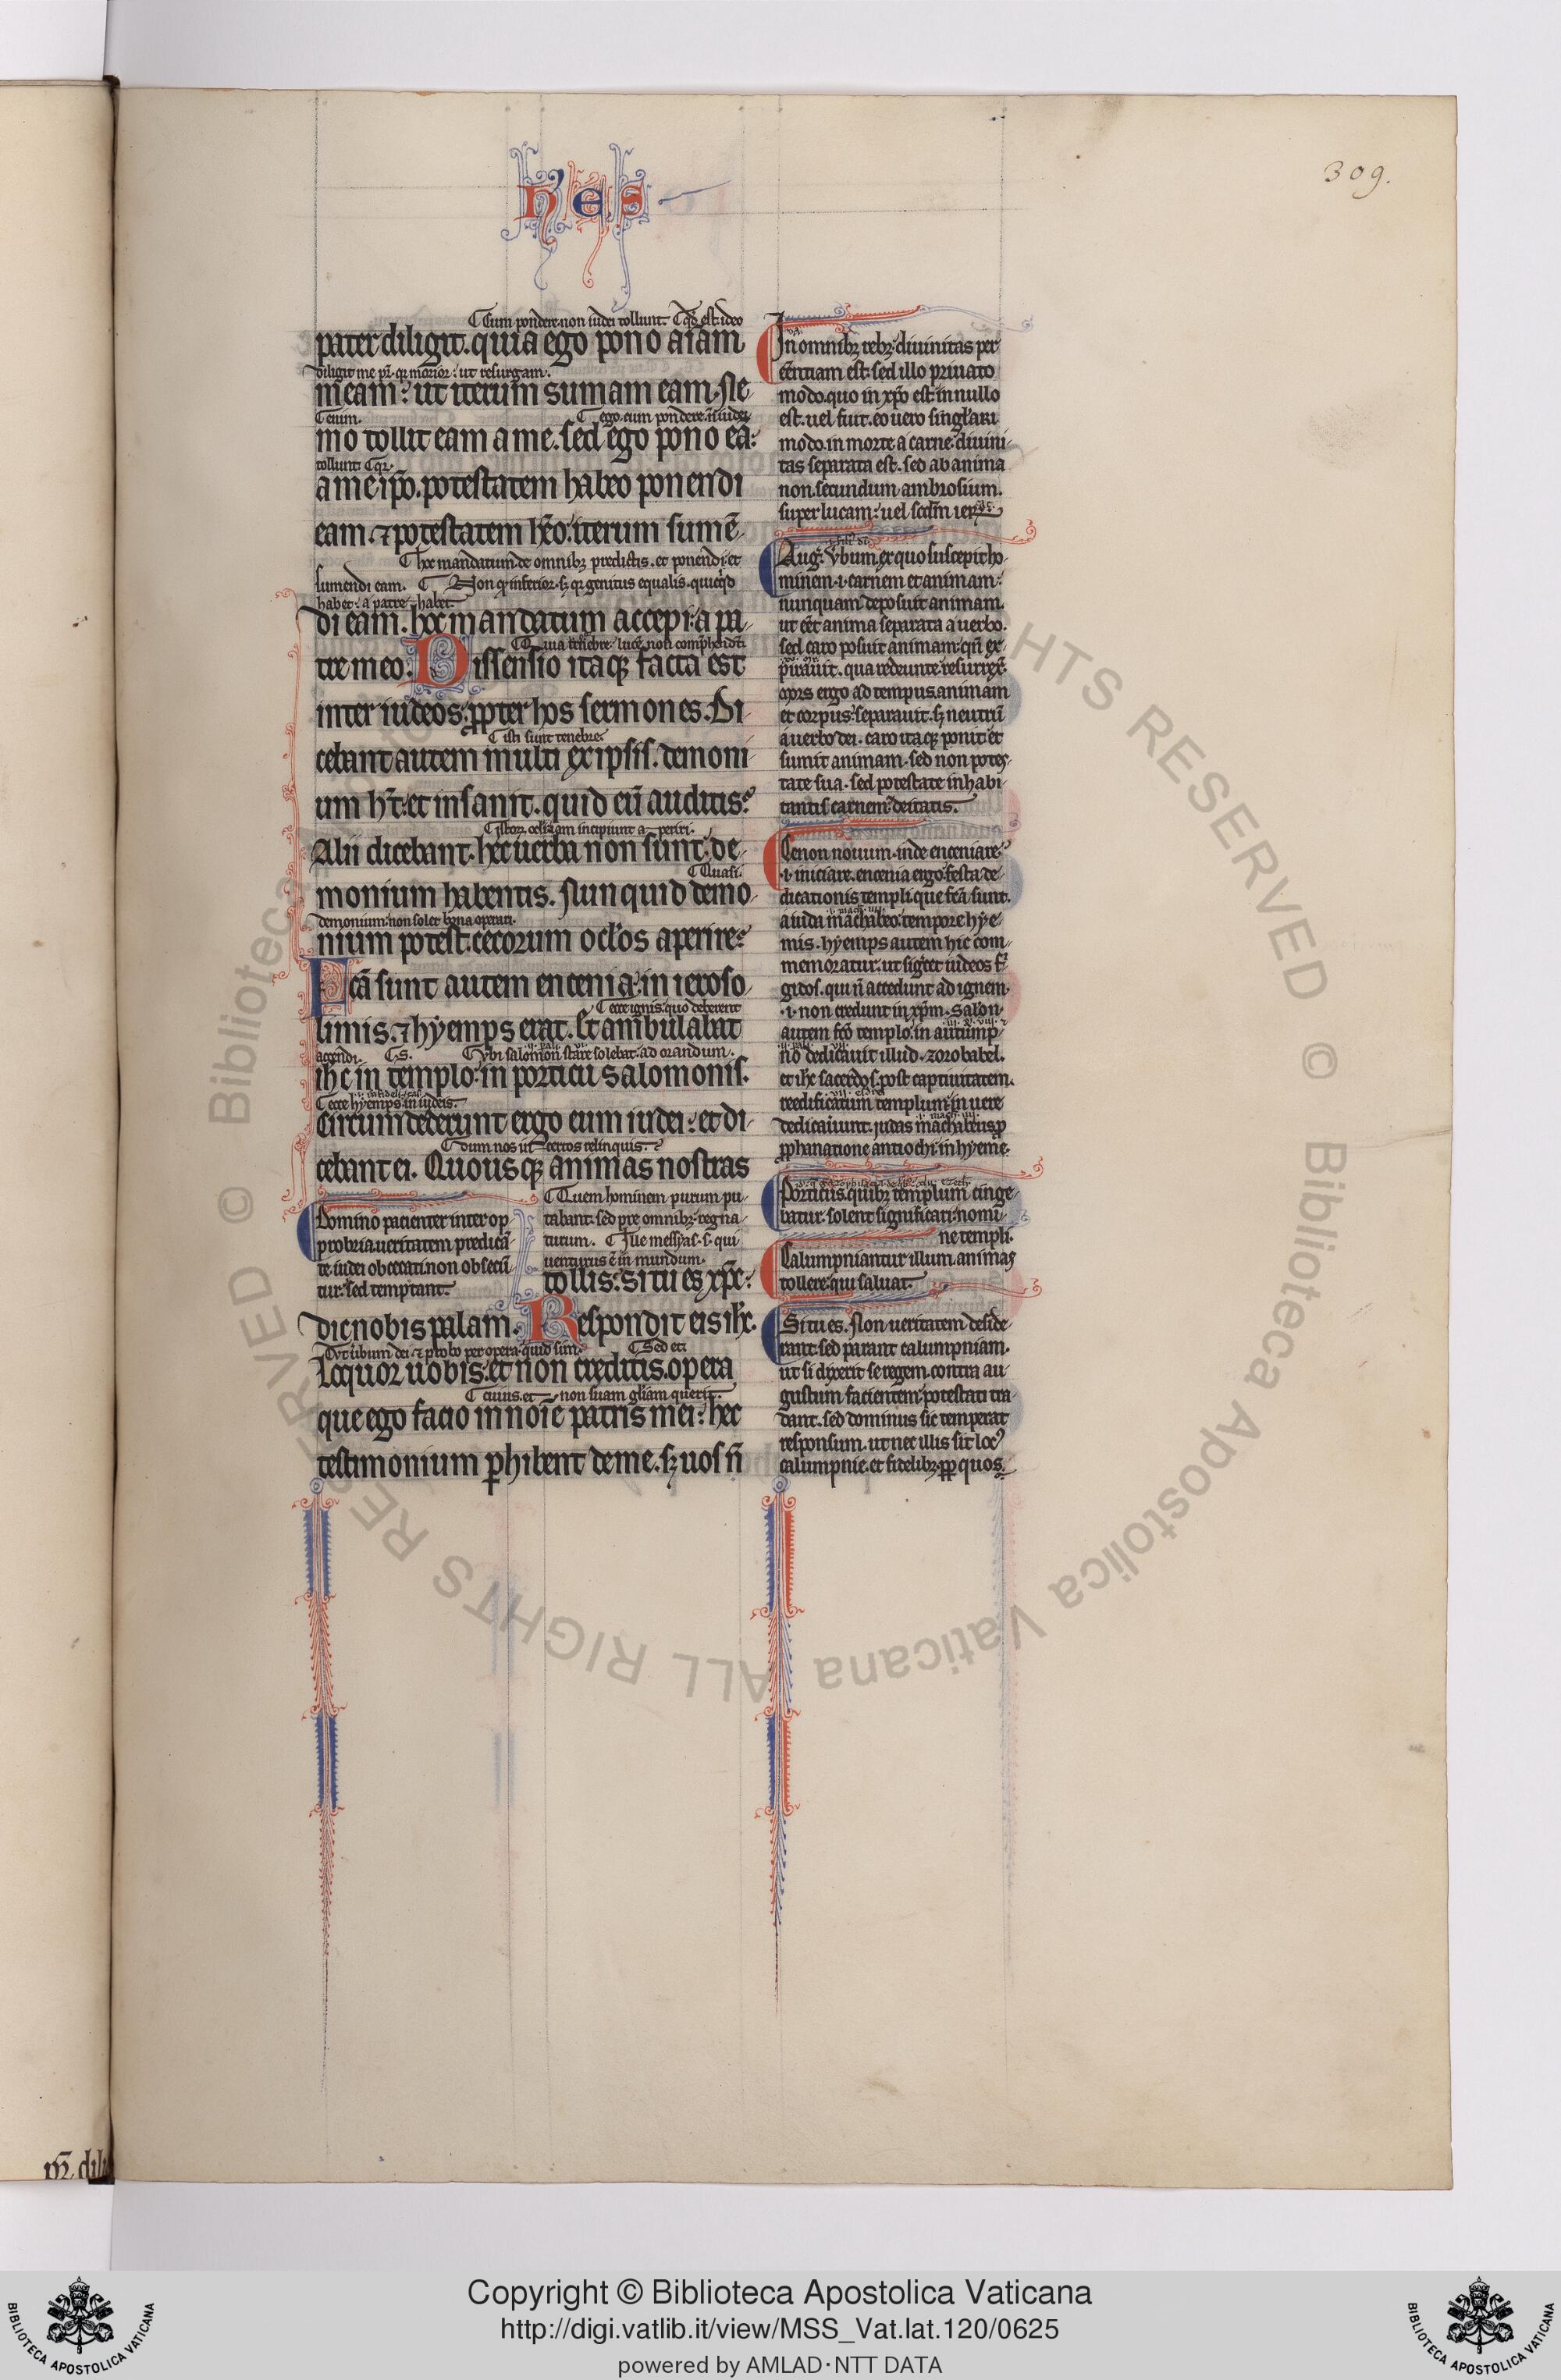 309.
hes
Cum pondere non iudei tollunt. qd est ideo
pater diligit. quia ego pono aīam
diligit me pr̄. qr morior: ut resurgam.
meam: ut iterum sumam eam. Ne
enim. ego eum pondere. n̄ iudei
mo tollit eam a me. sed ego pono eā:
tollunt. qr.
a me ip̄o. potestatem habeo ponendi
eam. ⁊ potestatem hēo: iterum sumē
hec mandatum de omnibꝫ predictis. et ponendi et
sumendi eam. Non qr inferior. sꝫ qr genitus equalis. quicqd
habet: a patre habet.
di eam. hoc mandatum accepi: a pa
Quia tenebre: lucē non comphendt
tre meo. Dissensio itaqꝫ facta est
inter iudeos: ꝓpter hos sermones. Di
isti sunt tenebre.
cebant autem multi ex ipsis. demoni
um ht̄: et insanit. quid eū auditis?
istorꝫ oculi iam incipiunt aperiri.
Alii dicebant. hec uerba non sunt: de
Quasi.
monium habentis. Nunquid demo
demonium: non solet bona operari.
nium potest: cecorum oclos aperire?
Fcā sunt autem encenia: in ieroso
ecce ignis: quo deberent
limis. ⁊ hyemps erat. Et ambulabat
accendi. S. Ubi salomon stare solebat: ad orandum.
ihc in templo: in porticu salomonis.
ecce hyemps in iudeis.
Circumdederunt ergo eum iudei: et di
dum nos incertos relinquis.
cebant ei. Quousqꝫ animas nostras
Domino pacienter inter op
probria: ueritatem predicā
te. iudei obcecati: non obsecū
tur: sed temptant.
Quem hominem purum pu
tabant. sed pre omnibꝫ regna
turum. Ille messyas. s. qui
uenturus ē in mundum.
tollis: Si tu es xp̄c:
dic nobis palam. Respondit eis ihc.
Ut ūbum dei. ⁊ probo per opera quid sim. Sed et
Loquor uobis: et non creditis. opera
cuius. et non suam glām querit.
que ego facio in noīe patris mei: hec
testimonium ꝑhibent de me. sꝫ uos n̄
In omnibꝫ rebꝫ diuinitas per
eēntiam est: sed illo priuato
modo. quo in xp̄o est: in nullo
est. uel fuit. eo uero singlari
modo. in morte a carne diuini
tas separata est. sed ab anima
non. secundum ambrosium.
super lucam: uel scdm ier
Aug. Ubum. ex quo suscepit ho
minem .i. carnem et animam:
nunquam deposuit animam.
ut eēt anima separata a uerbo.
sed caro posuit animam: qn̄ ex
pirauit. qua redeunte: resurrex.
Mors ergo ad tempus animam
et corpus: separauit. sꝫ neutrū
a uerbo dei. caro itaqꝫ ponit et
sumit animam. sed non potes
tate sua. sed potestate inhabi
tantis carnem: deitatis.
Cenon nouum. inde enceniare:
.i. iniciare. encenia ergo: festa de
dicationis templi que fcā sunt.
a iuda machabeo: tempore hye
mis. hyemps autem hic com
memoratur: ut sigcet iudeos fri
gidos. qui n̄ accedunt ad ignem
.i. non credunt in xp̄m. Salon
autem fcō templo: in autump
no dedicauit illud. zorobabel.
et ihc sacerdos. post captiuitatem.
reedificatum templum: in uere
dedicauunt. iudas machabeus p
ꝓphanatione antiochi: in hyeme.
Porticus. quibꝫ templum cinge
batur: solent significari nomi
ne templi.
Calumpniantur illum. animas
tollere: qui saluat.
Si tu es. Non ueritatem deside
rant: sed parant calumpniam.
ut si dixerit se regem. contra au
gustum facientem: potestati tra
dant. sed dominus sic temperat
responsum. ut nec illis sit loc
calumpnie. et fidelibꝫ ꝓp quos
pr̄. dili
Copyright © Biblioteca Apostolica Vaticana
http://digi.vatlib.it/view/MSS_Vat.lat.120/0625
powered by AMLAD·NTT DATA
BIBLIOTECA APOSTOLICA VATICANA
BIBLIOTECA APOSTOLICA VATICANA
© Biblioteca Apostolica Vaticana ALL RIGHTS RESERVED